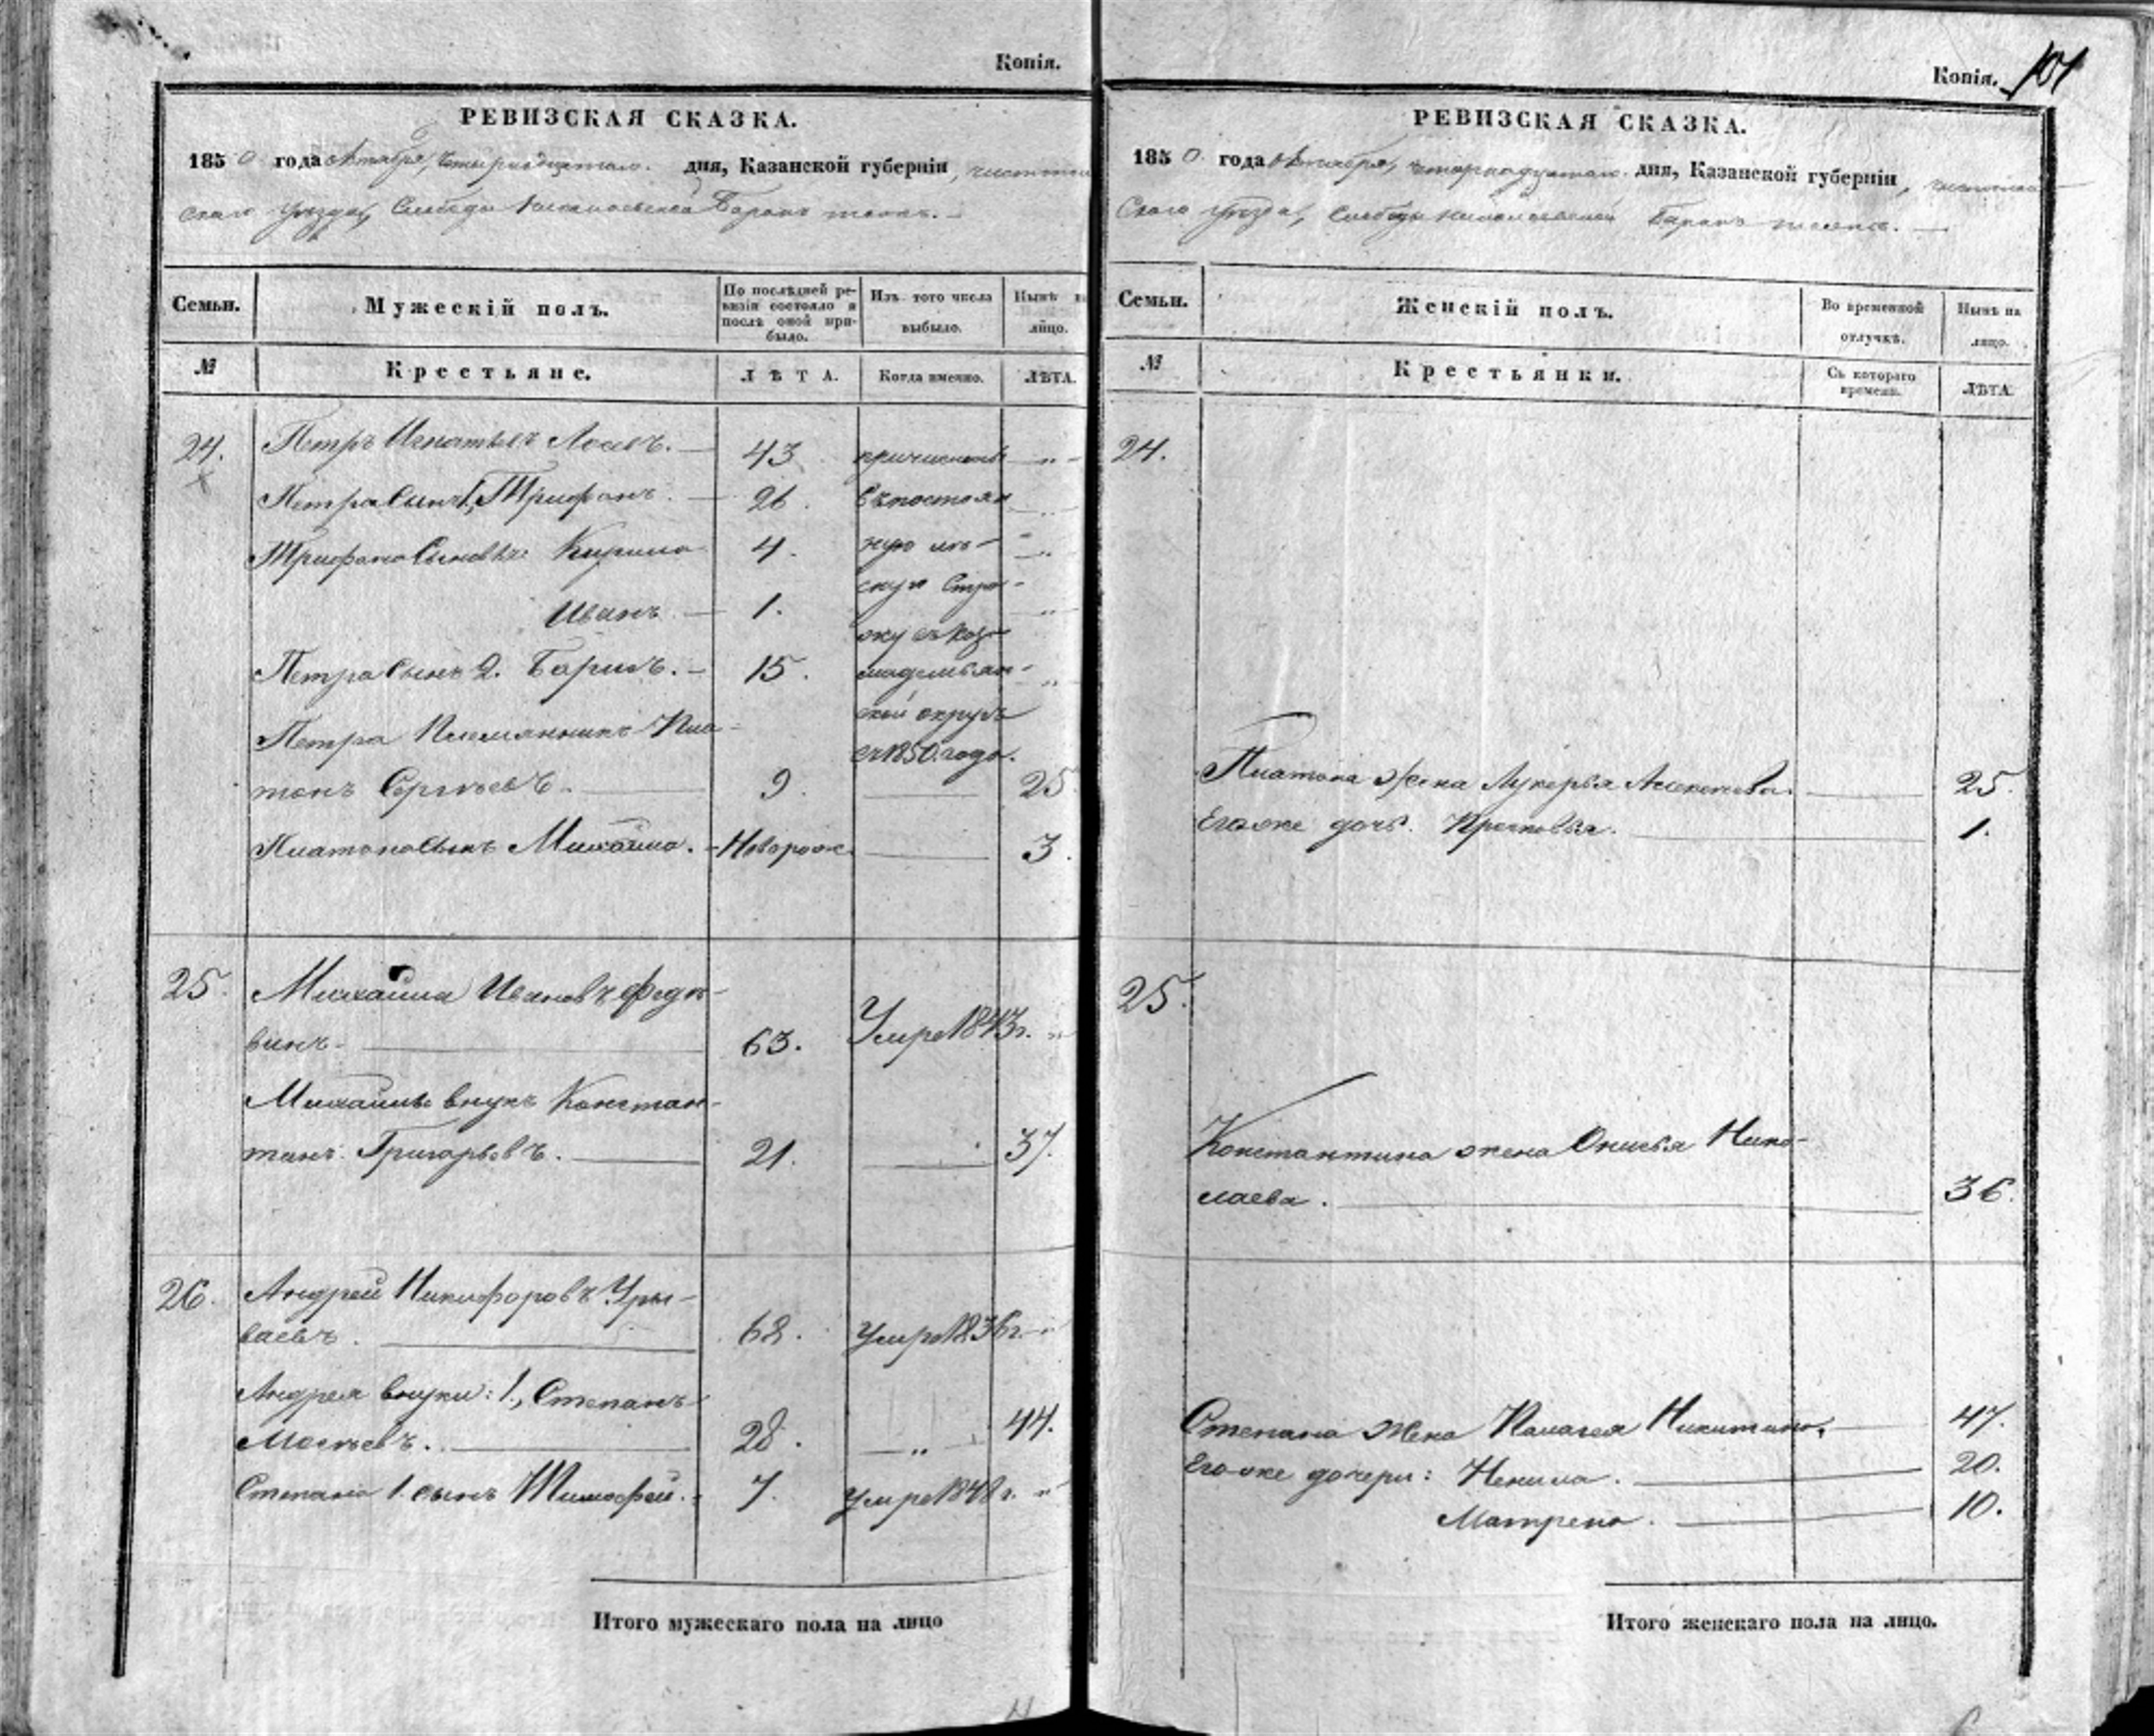 Копія.
РЕВИЗСКАЯ СКАЗКА.
1850 года Октября, четырнадцатаго дня, Казанской губерніи,
скаго уѣзда, Слободы
Семьи. Мужескій полъ. По послѣдней ревизіи состояло и послѣ оной прибыло. Изъ того числа выбыло. Нынѣ на лицо.
№ Крестьяне. ЛѢТА. Когда именно. ЛѢТА.
24. Петръ Игнатьевъ Лосевъ. — 43 причислены „
Петра Сынъ 1, Трифонъ. — 26. въ постоян „
Трифона Сыновья: Кирила 4. ную „
скую Стра-
Иванъ. — 1. „
жу съ Коз-
Петра Сынъ 2. Борисъ. — 15. модемьян- „
ской округѣ
Петра Племянникъ Пла-
съ 1850 года.
тонъ Сергѣевъ. 9. — 25
Платона Сынъ Михайло. — Новорож. — 3.
25. Михайла Ивановъ Федо-
винъ. 63. Умре 1843 г. „
Михайлы внукъ Констан-
тинъ Григорьевъ. 21. — 37.
26. Андрей Никифоровъ Уры-
ваевъ. 68. Умре 1836 г. „
Андрея внуки: 1., Степанъ
Мосѣевъ. 28. — „ — 44.
Степана 1. сынъ Тимофей. 7. Умре 1848 г. „
Итого мужескаго пола на лицо
Копія. 101
РЕВИЗСКАЯ СКАЗКА.
1850 года Октября, четырнадцатаго дня, Казанской губерніи,
скаго уѣзда, Слободы
Семьи. Женскій полъ. Во временной отлучкѣ. Нынѣ на лицо.
№ Крестьянки. Съ котораго времени. ЛѢТА.
24.
Платона жена Лукерья 25.
Его же дочь. Прасковья. 1.
25.
Константина жена Онисья Нико-
лаева. 36.
Степана жена Палагея Никитина. 47.
Его же дочери: Ненила. 20.
Матрена. 10.
Итого женскаго пола на лицо.